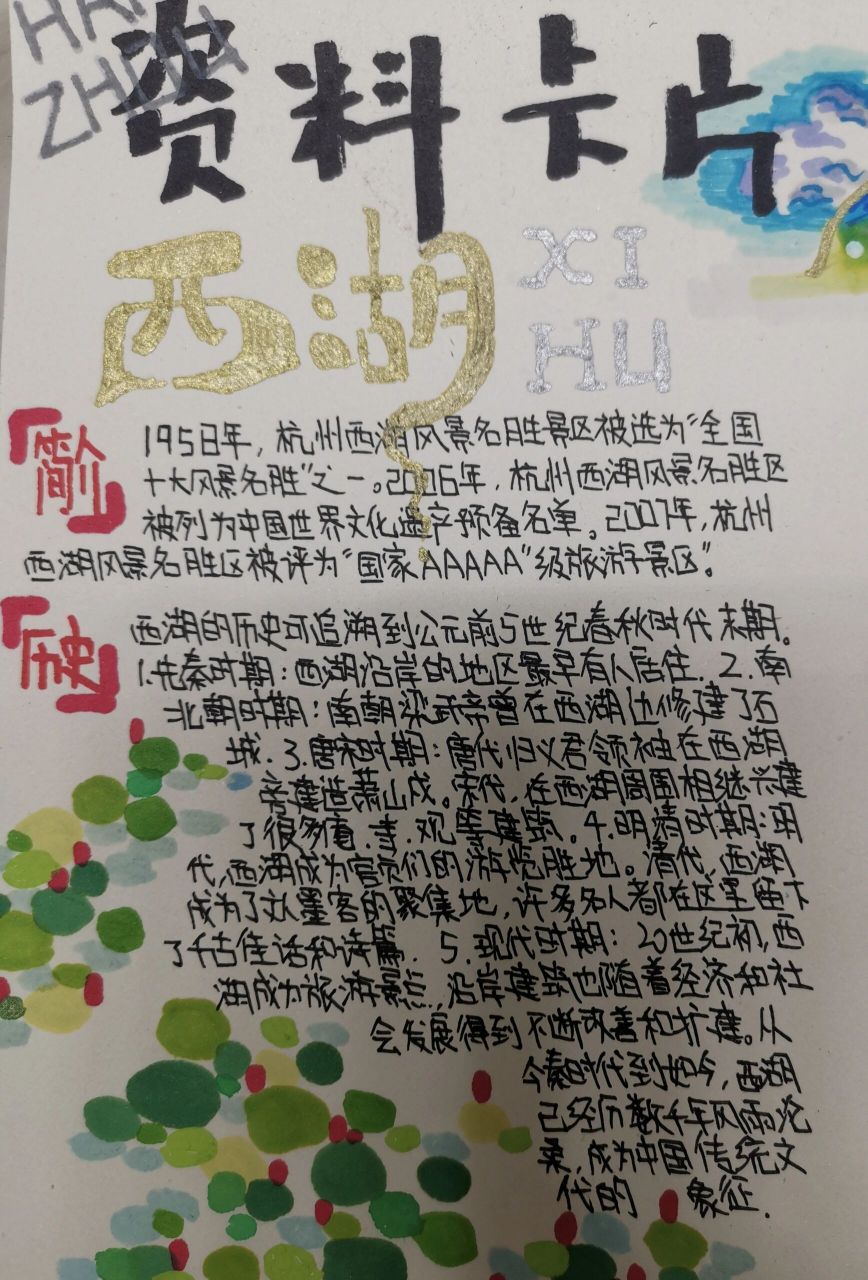 HAN
ZHOU
资料卡片
西湖
XI
HU
简介
1958年,杭州西湖风景名胜景区被选为“全国
十大风景名胜”之一。2006年,杭州西湖风景名胜区
被列为中国世界文化遗产预备名单。2007年,杭州
西湖风景名胜区被评为“国家AAAAA”级旅游景区”。
历史
西湖的历史可追溯到公元前5世纪春秋时代末期。
1.先秦时期:西湖沿岸的地区最早有人居住. 2.南
北朝时期:南朝梁 在西湖边修建了石
城.3.唐 时期:唐代归义君领袖在西湖
建造 山戍。宋代,在西湖周围相继兴建
了很多 寺.观 建筑。4.明清时期:明
代,西湖成为官员们的游览胜地。清代,西湖
成为了文人墨客的聚集地,许多名人都在这里留下
了千古佳话和诗篇. 5.现代时期:20世纪初,西
湖成为旅游景点,沿岸建筑也随着经济和社
会发展得到不断改善和扩建。从
秦时代到如今,西湖
已经历数千年风雨沧
桑,成为中国传统文
代的 象征.